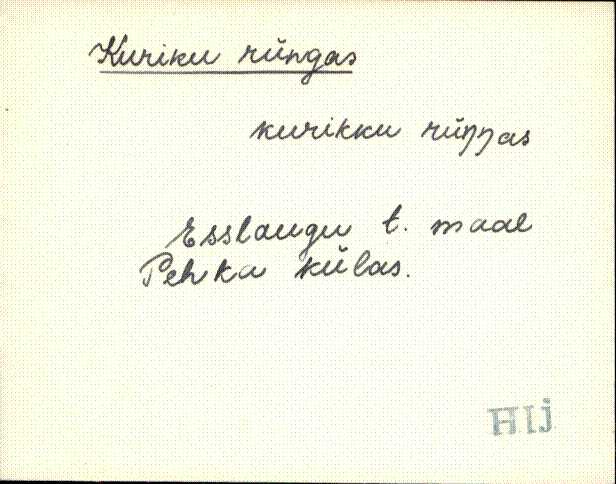 Kuriku rüngas
kurikku rüŋŋas
Esslaugu t. maal
Pehka külas.
HIj